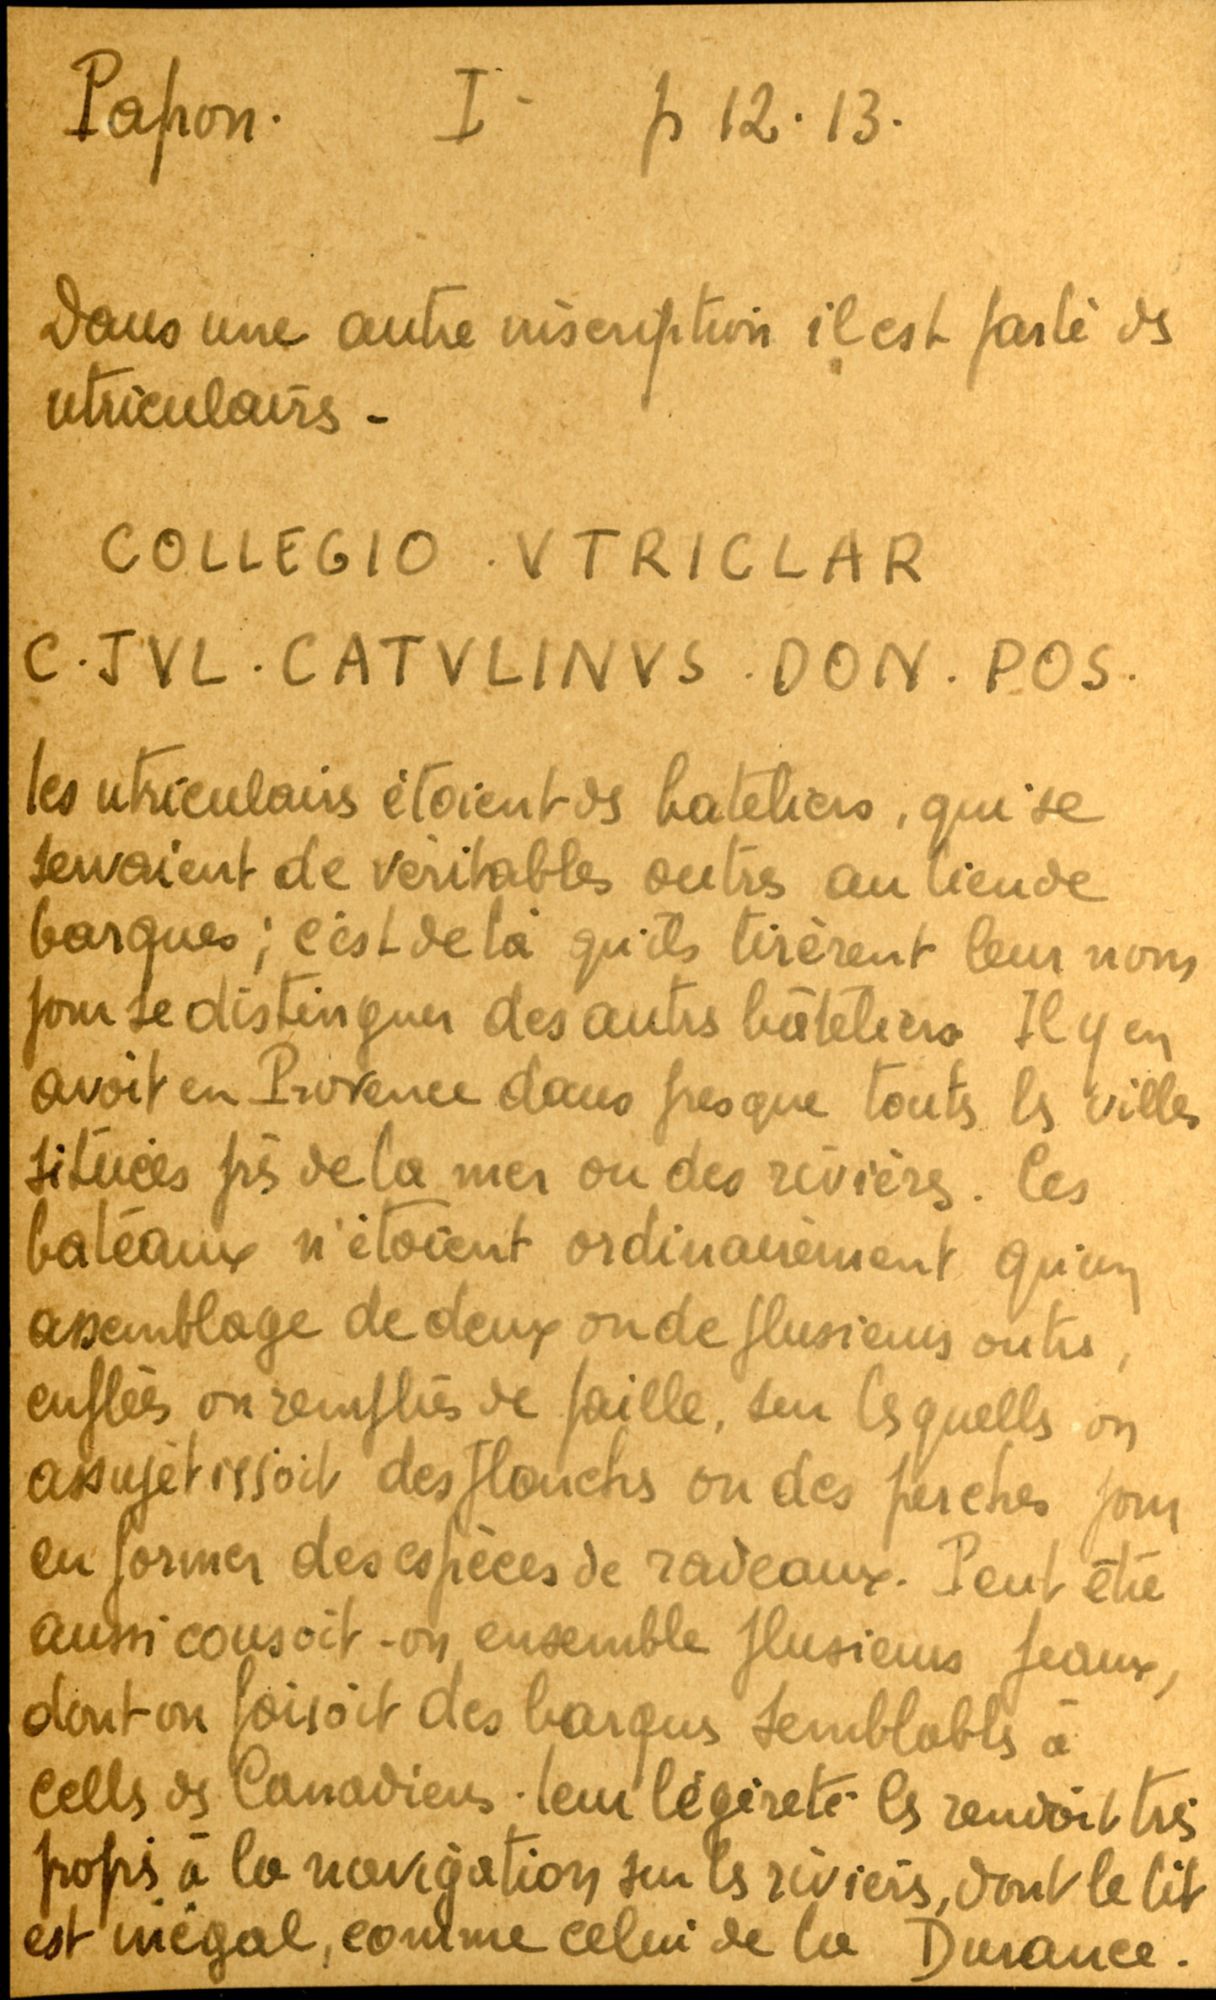 Papon. I - p 12.13.
Dans une autre inscription il est parlé des
utriculaires -
COLLEGIO . VTRICLAR
C. JVL. CATVLINVS. DON. POS.
les utriculaires étoient des bateliers, qui se
servoient de véritables outres au lieu de
barques ; c'est de là qu'ils tirèrent leur nom
pour se distinguer des autres bâteliers Il y en
avoit en Provence dans presque toutes les villes
situées près de la mer ou des rivières. Ces
bateaux n'étoient ordinairement qu'un
assemblage de deux ou de plusieurs outres,
enflées ou remplies de paille, sur lesquelles on
assujetissoit des planches ou des perches pour
en former des espèces de radeaux. Peut être
aussi cousoit-on ensemble plusieurs peaux,
dont on faisoit des barques semblables à
celles des Canadiens. leur légèreté les rendoit très
propres à la navigation sur les rivières, dont le lit
est inégal, comme celui de la Durance.